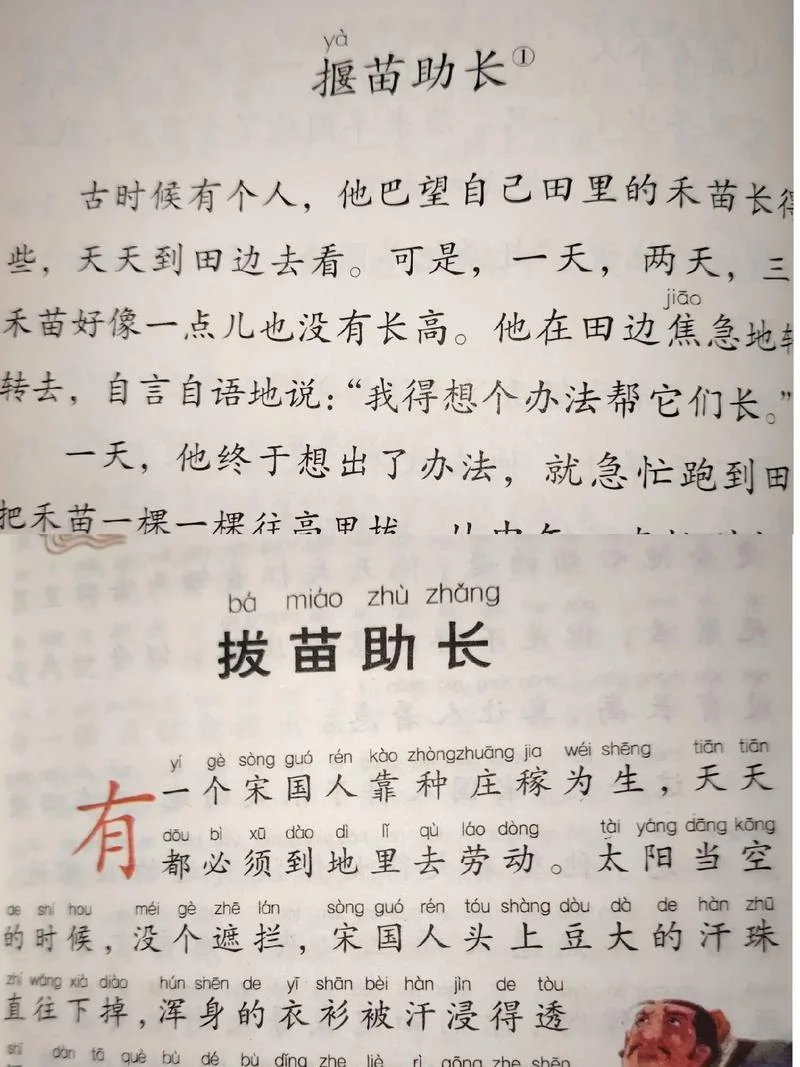 yà
揠苗助长①
古时候有个人，他巴望自己田里的禾苗长得
些，天天到田边去看。可是，一天，两天，三
jiāo
禾苗好像一点儿也没有长高。他在田边焦急地转
转去，自言自语地说：“我得想个办法帮它们长。”
一天，他终于想出了办法，就急忙跑到田
把禾苗一棵一棵往高里拔，从中午
bá miáo zhù zhǎng
拔苗助长
yí gè sòng guó rén kào zhòngzhuāng jia wéi shēng tiān tiān
有一个宋国人靠种庄稼为生，天天
dōu bì xū dào dì lǐ qù láo dòng tài yáng dāng kōng
都必须到地里去劳动。太阳当空
de shí hou méi gè zhē lán sòng guó rén tóu shàng dòu dà de hàn zhū
的时候，没个遮拦，宋国人头上豆大的汗珠
zhí wǎng xià diào hún shēn de yī shān bèi hàn jìn de tòu
直往下掉，浑身的衣衫被汗浸得透
shī dàn tā què bù dé bù dǐng zhe liè rì gōng zhe shēn